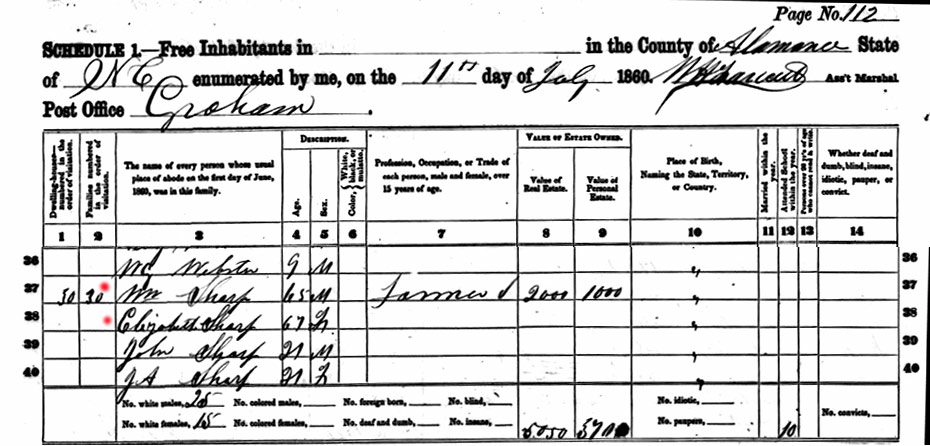 Page No. 112
SCHEDULE 1.—Free Inhabitants in in the County of Alamance State
of N C enumerated by me, on the 11th day of July 1860. Ass't Marshal.
Post Office Graham.
DESCRIPTION. VALUE OF ESTATE OWNED.
Dwelling-houses—numbered in the order of visitation. Families numbered in the order of visitation. The name of every person whose usual place of abode on the first day of June, 1860, was in this family. Age. Sex. Color, White, black, or mulatto. Profession, Occupation, or Trade of each person, male and female, over 15 years of age. Value of Real Estate. Value of Personal Estate. Place of Birth, Naming the State, Territory, or Country. Married within the year. Attended School within the year. Persons over 20 y'rs of age who cannot read & write. Whether deaf and dumb, blind, insane, idiotic, pauper, or convict.
1 2 3 4 5 6 7 8 9 10 11 12 13 14
36 Webster 9 M " 36
37 30 30 Wm Sharp 65 M Farmer 2000 1000 " 37
38 Elizabeth Sharp 67 F " 38
39 John Sharp 21 M " 39
40 J A Sharp 21 F " 40
No. white males, 25 No. colored males, No. foreign born, No. blind, No. idiotic,
No. white females, 15 No. colored females, No. deaf and dumb, No. insane, 5050 No. paupers, 10 No. convicts,